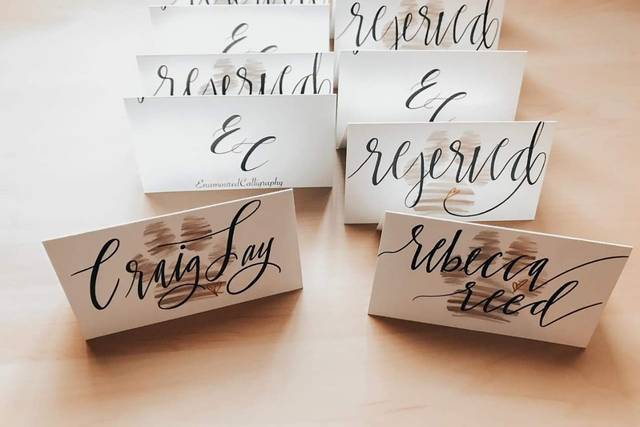 reserved
E
C
reserved
E
&
C
reserved
E
&
C
EnamouredCalligraphy
reserved
Craig Lay
rebecca
reed